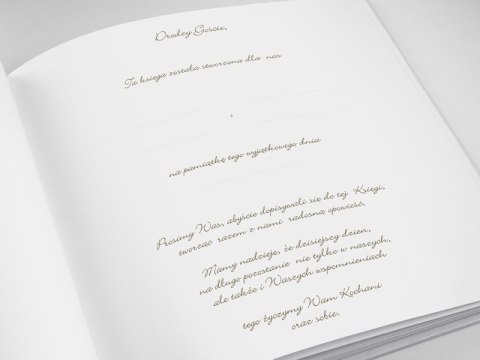 Drodzy Goście,
Ta księga została stworzona dla nas
&
na pamiątkę tego wyjątkowego dnia
Prosimy Was, abyście dopisywali się do tej Księgi,
tworząc razem z nami radosną opowieść.
Mamy nadzieję, że dzisiejszy dzień,
na długo pozostanie nie tylko w naszych,
ale także i Waszych wspomnieniach
tego życzymy Wam Kochani
oraz sobie.